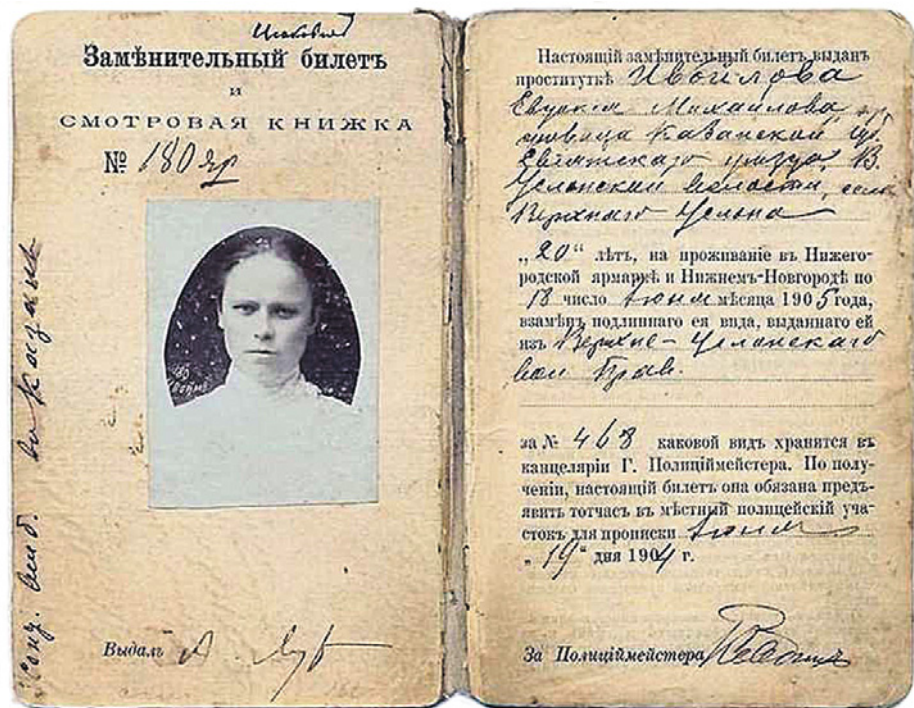 Замѣнительный билетъ
и
СМОТРОВАЯ КНИЖКА
№ 180 яр
Выдалъ
Настоящій замѣнительный билетъ выданъ
проституткѣ Ивойлова
Михайлова
Казанской губ.
уѣзда, В.
Услонской волости, села
Верхняго Услона
„20“ лѣтъ, на проживаніе въ Нижего-
родской ярмаркѣ и Нижнемъ-Новгородѣ по
18 число Іюня мѣсяца 1905 года,
взамѣнъ подлиннаго ея вида, выданнаго ей
изъ Верхне-Услонскаго
вол. Прав.
за № 468 каковой видъ хранится въ
канцеляріи Г. Полиціймейстера. По полу-
ченіи, настоящій билетъ она обязана предъ-
явить тотчасъ въ мѣстный полицейскій уча-
стокъ для прописки Іюня
„19“ дня 1904 г.
За Полиціймейстера